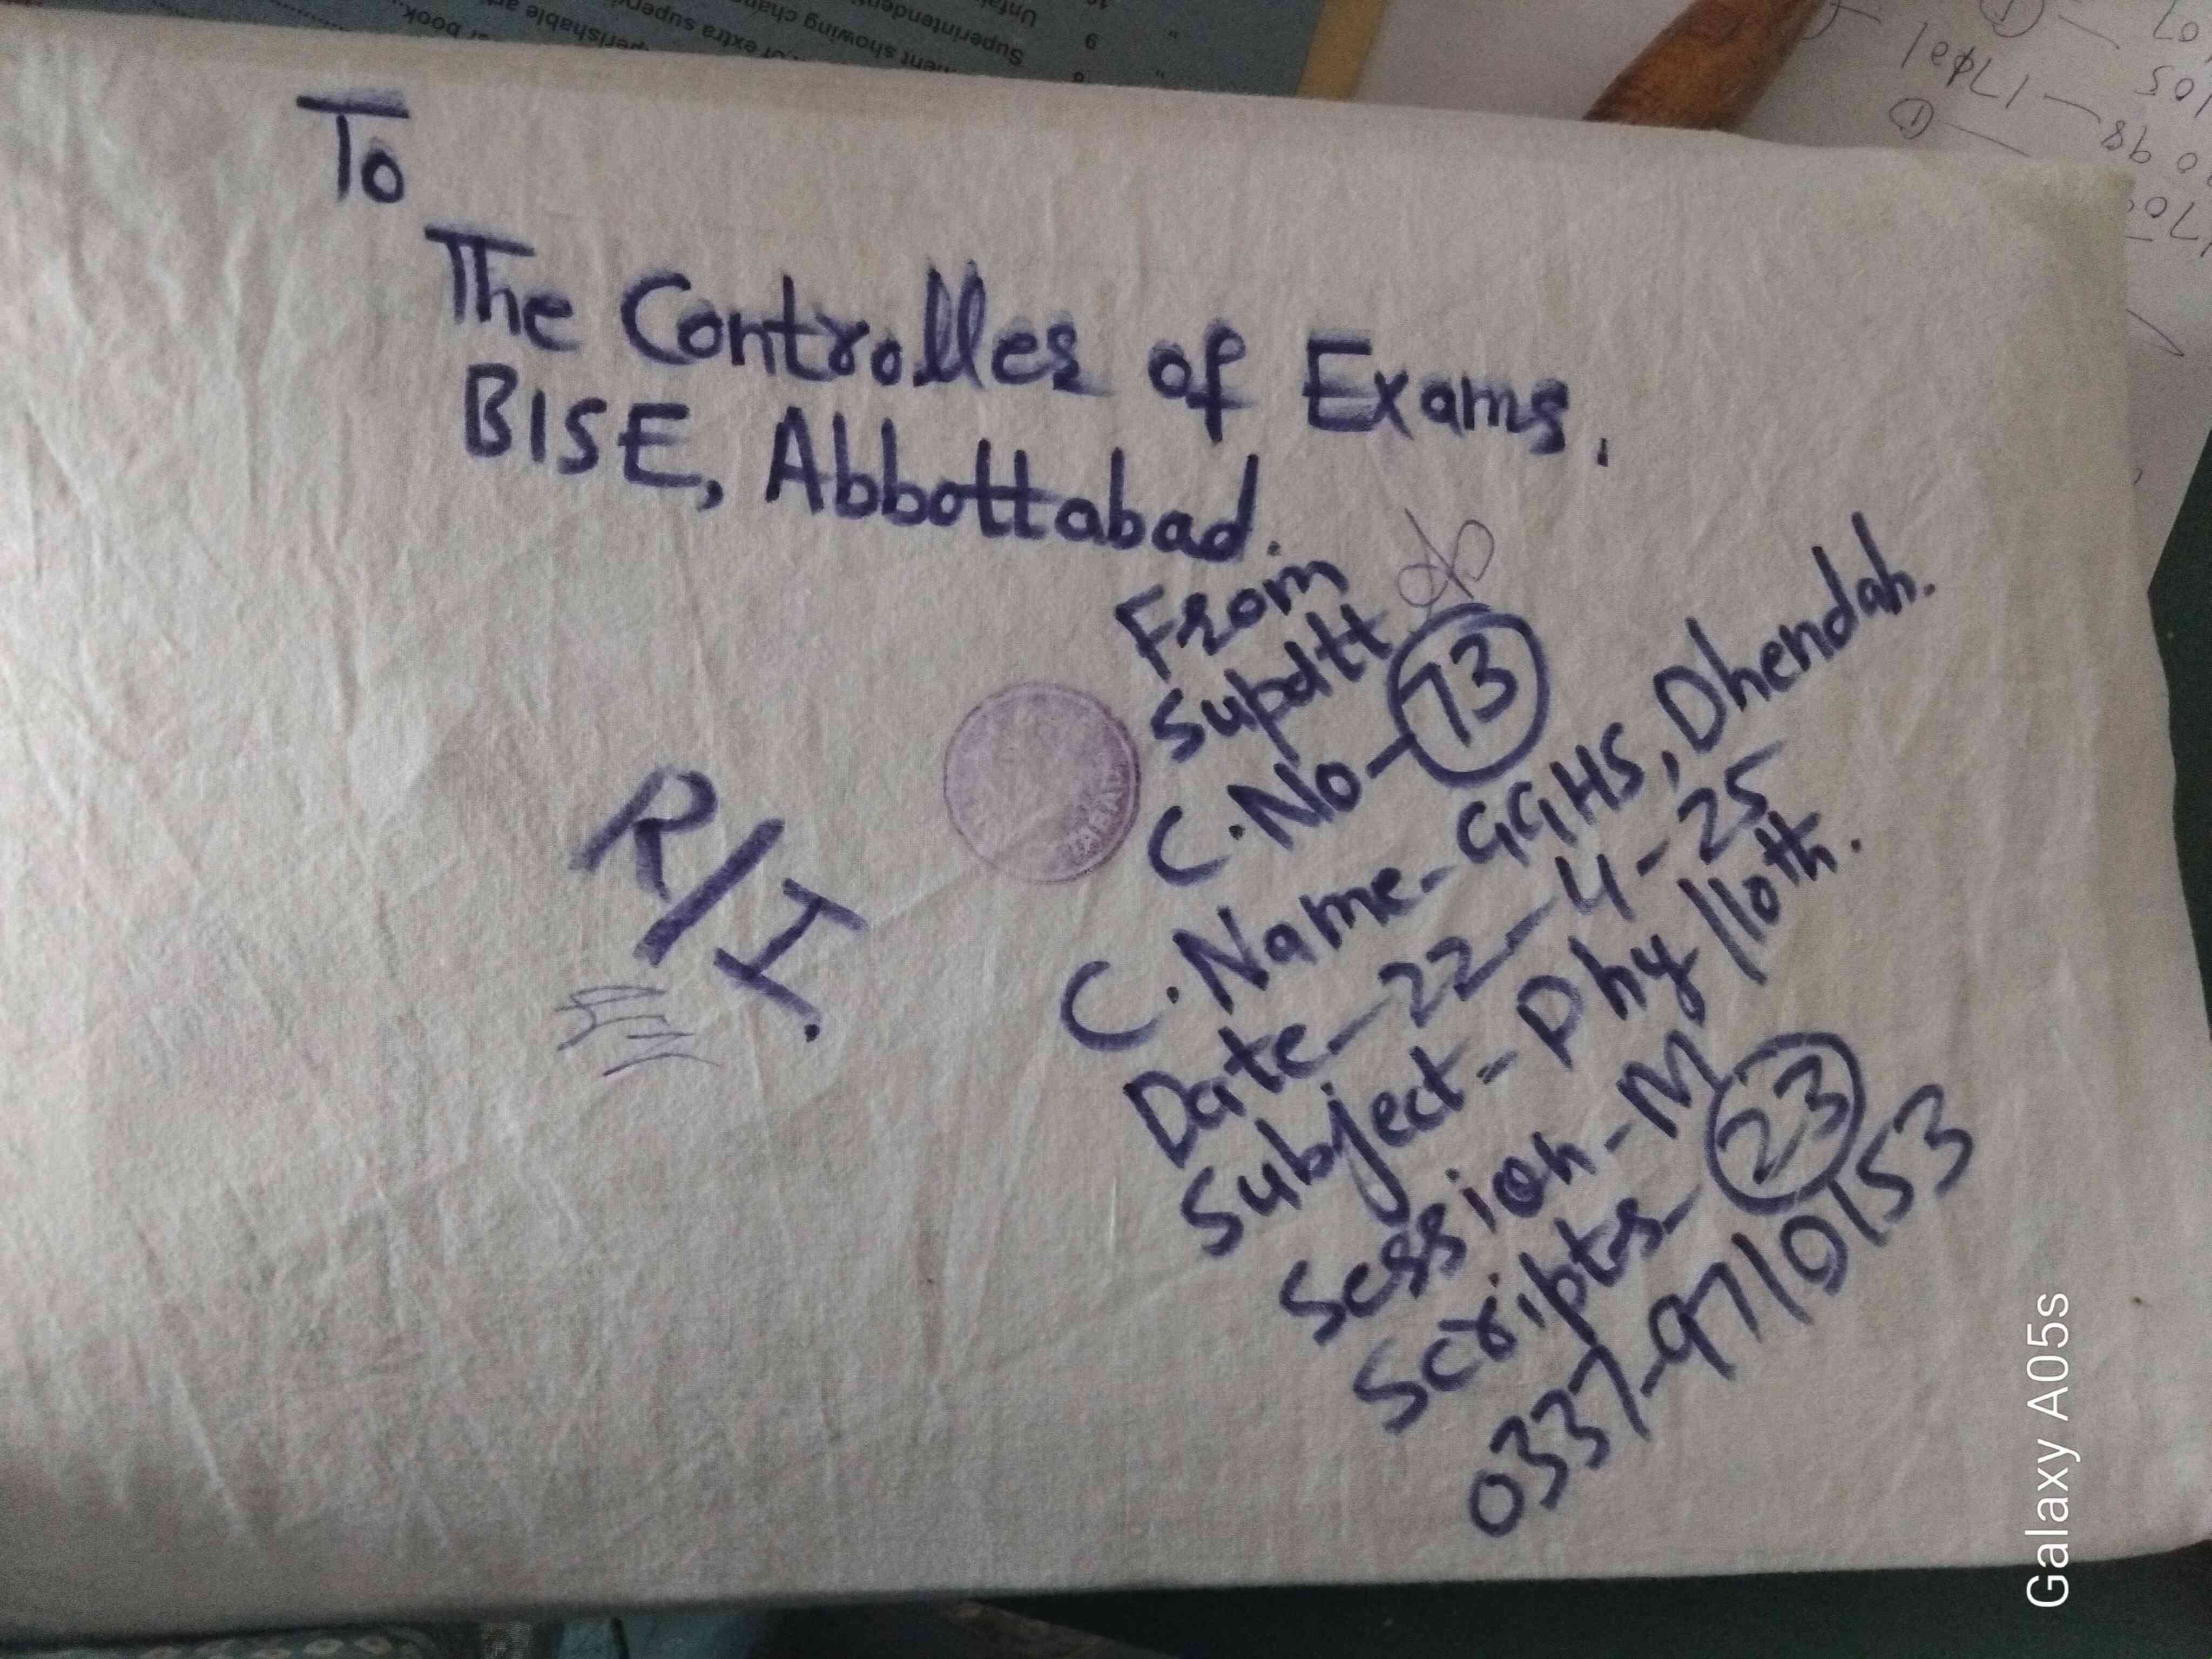 To
The Controller of Exams,
BISE, Abbottabad.
From
Supdtt
C.No-73
C.Name-GGHS, Dhendah.
Date-22-4-25
Subject-Phy/10th.
Session-M
Scripts-23
0337-9710153
R/I.
Galaxy A05s